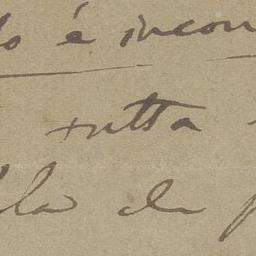 lo é incon
tutta
lla da p